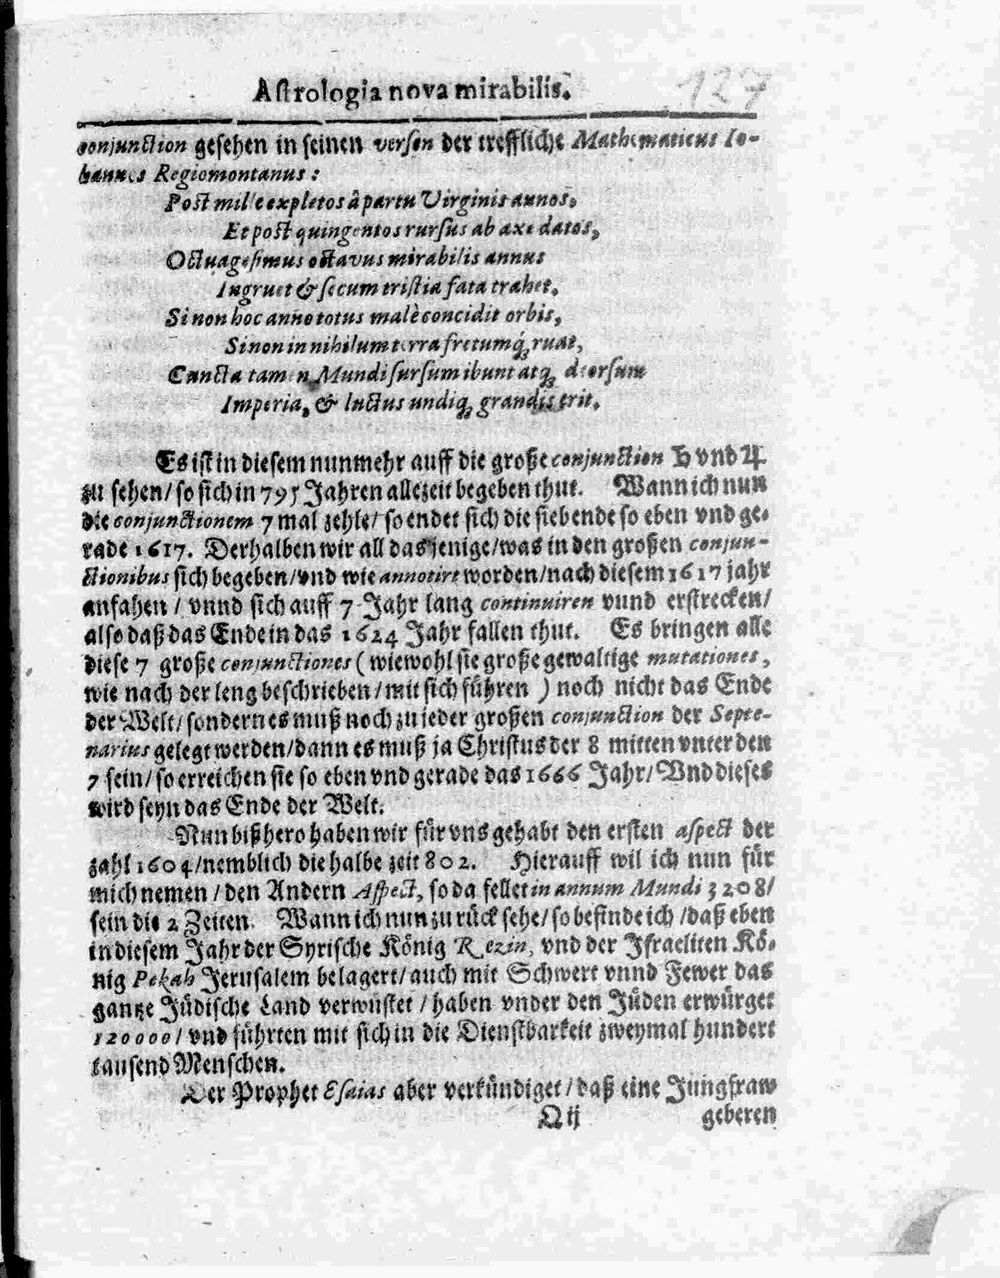 Astrologia nova mirabilis. 127
conjunction gesehen in seinen versen der treffliche Mathematicus Io-
hannes Regiomontanus:
Post mille expletos â partu Virginis annos,
Et post quingentos rursus ab axe datos,
Octuagesimus octavus mirabilis annus
Ingruet & secum tristia fata trahet.
Si non hoc anno totus malè concidit orbis,
Si non in nihilum terra fretumq́; ruat,
Cuncta tamen Mundi sursum ibunt atq; deorsum
Imperia, & luctus undiq; grandis erit.
Es ist in diesem nunmehr auff die große conjunction ♄ vnd ♃
zu sehen/ so sich in 795 Jahren allezeit begeben thut. Wann ich nun
die conjunctionem 7 mal zehle/ so endet sich die siebende so eben vnd ge-
rade 1617. Derhalben wir all das jenige/ was in den großen conjun-
ctionibus sich begeben/ vnd wie annotirt worden/ nach diesem 1617 jahr
anfahen / vnnd sich auff 7 Jahr lang continuiren vnnd erstrecken/
also daß das Ende in das 1624 Jahr fallen thut. Es bringen alle
diese 7 große conjunctiones ( wiewohl sie große gewaltige mutationes,
wie nach der leng beschrieben/ mit sich führen ) noch nicht das Ende
der Welt/ sondern es muß noch zu jeder großen conjunction der Septe-
narius gelegt werden/ dann es muß ja Christus der 8 mitten vnter den
7 sein/ so erreichen sie so eben vnd gerade das 1666 Jahr/ Vnd dieses
wird seyn das Ende der Welt.
Nun bißhero haben wir für vns gehabt den ersten aspect der
zahl 1604/ nemblich die halbe zeit 802. Hierauff wil ich nun für
mich nemen / den Andern Aspect, so da fellet in annum Mundi 3208/
sein die 2 Zeiten. Wann ich nun zu rück sehe/ so befinde ich / daß eben
in diesem Jahr der Syrische König Rezin, vnd der Jsraeliten Kö-
nig Pekah Jerusalem belagert/ auch mit Schwert vnnd Fewer das
gantze Jüdische Land verwüstet / haben vnder den Jüden erwürget
120000/ vnd führten mit sich in die Dienstbarkeit zweymal hundert
tausend Menschen.
Der Prophet Esaias aber verkündiget / daß eine Jungfraw
Q ij geberen